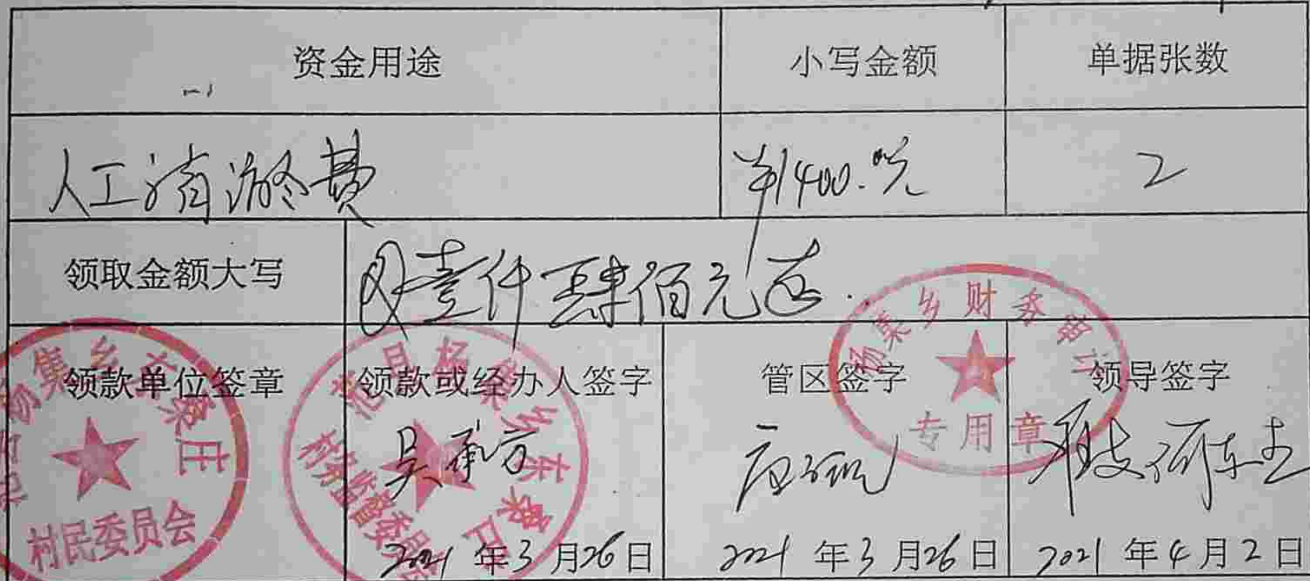 资金用途 小写金额 单据张数
人工清淤费 ¥1400.元 2
领取金额大写 壹仟肆佰元
领款单位签章 领款或经办人签字 管区签字 领导签字
吴承方
2021年3月26日 2021年3月26日 2021年4月2日
杨集乡东桑庄
村民委员会
范县杨集乡东桑庄
村务监督委员会
杨集乡财务审计
专用章